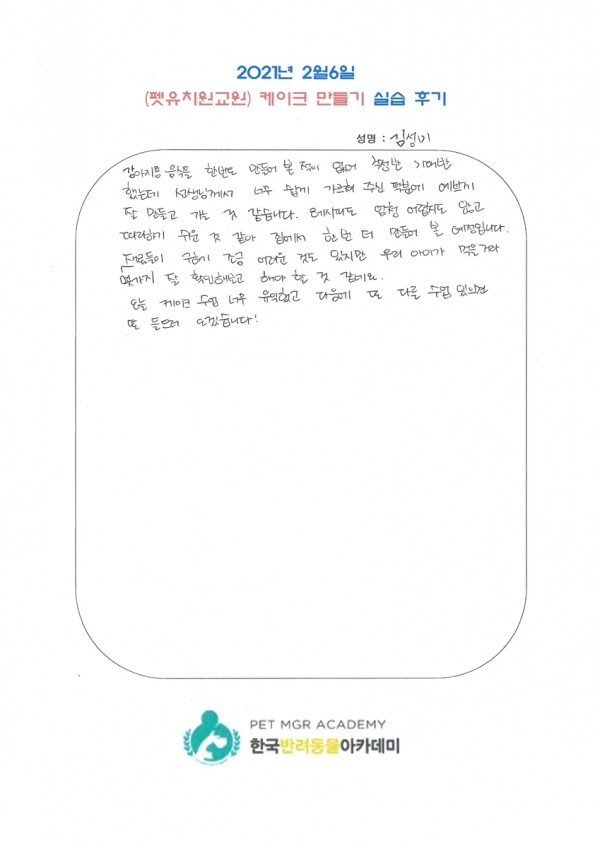 2021년 2월6일
(펫유치원교원) 케이크 만들기 실습 후기
성명 : 김성미
강아지용 음식을 한번도 만들어 본 적이 없어 걱정반 기대반
했는데 선생님께서 너무 쉽게 가르쳐 주신 덕분에 예쁘게
잘 만들고 가는 것 같습니다. 레시피도 엄청 어렵지도 않고
따라하기 쉬운 것 같아 집에서 한번 더 만들어 볼 예정입니다.
재료들이 구하기 조금 어려운 것도 있지만 우리 아이가 먹을거라
몇가지 잘 확인해보고 해야 할 것 같네요.
오늘 케이크 수업 너무 유익했고 다음에 또 다른 수업 있으면
또 들으러 오겠습니다!
PET MGR ACADEMY
한국반려동물아카데미